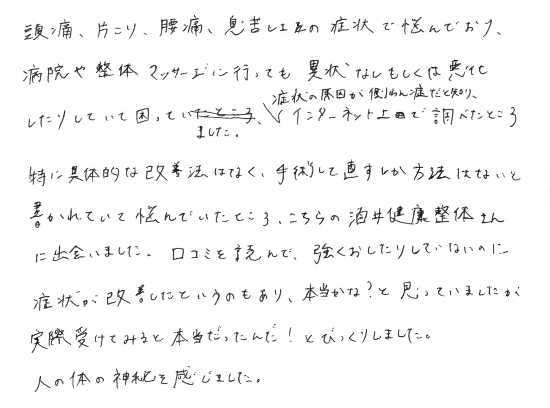 頭痛、片こり、腰痛、息苦しさ等の症状で悩んでおり、
病院や整体マッサージに行っても異状なしもしくは悪化
症状の原因が側わん症だと知り、
したりしていて困っていました。インターネット上で調べたところ
特に具体的な改善法はなく、手術して直すしか方法はないと
書かれていて悩んでいたところ、こちらの酒井健康整体さん
に出会いました。口コミを読んで、強くおしたりしていないのに
症状が改善したというのもあり、本当かな?と思っていましたが
実際受けてみると本当だったんだ!とびっくりしました。
人の体の神秘を感じました。